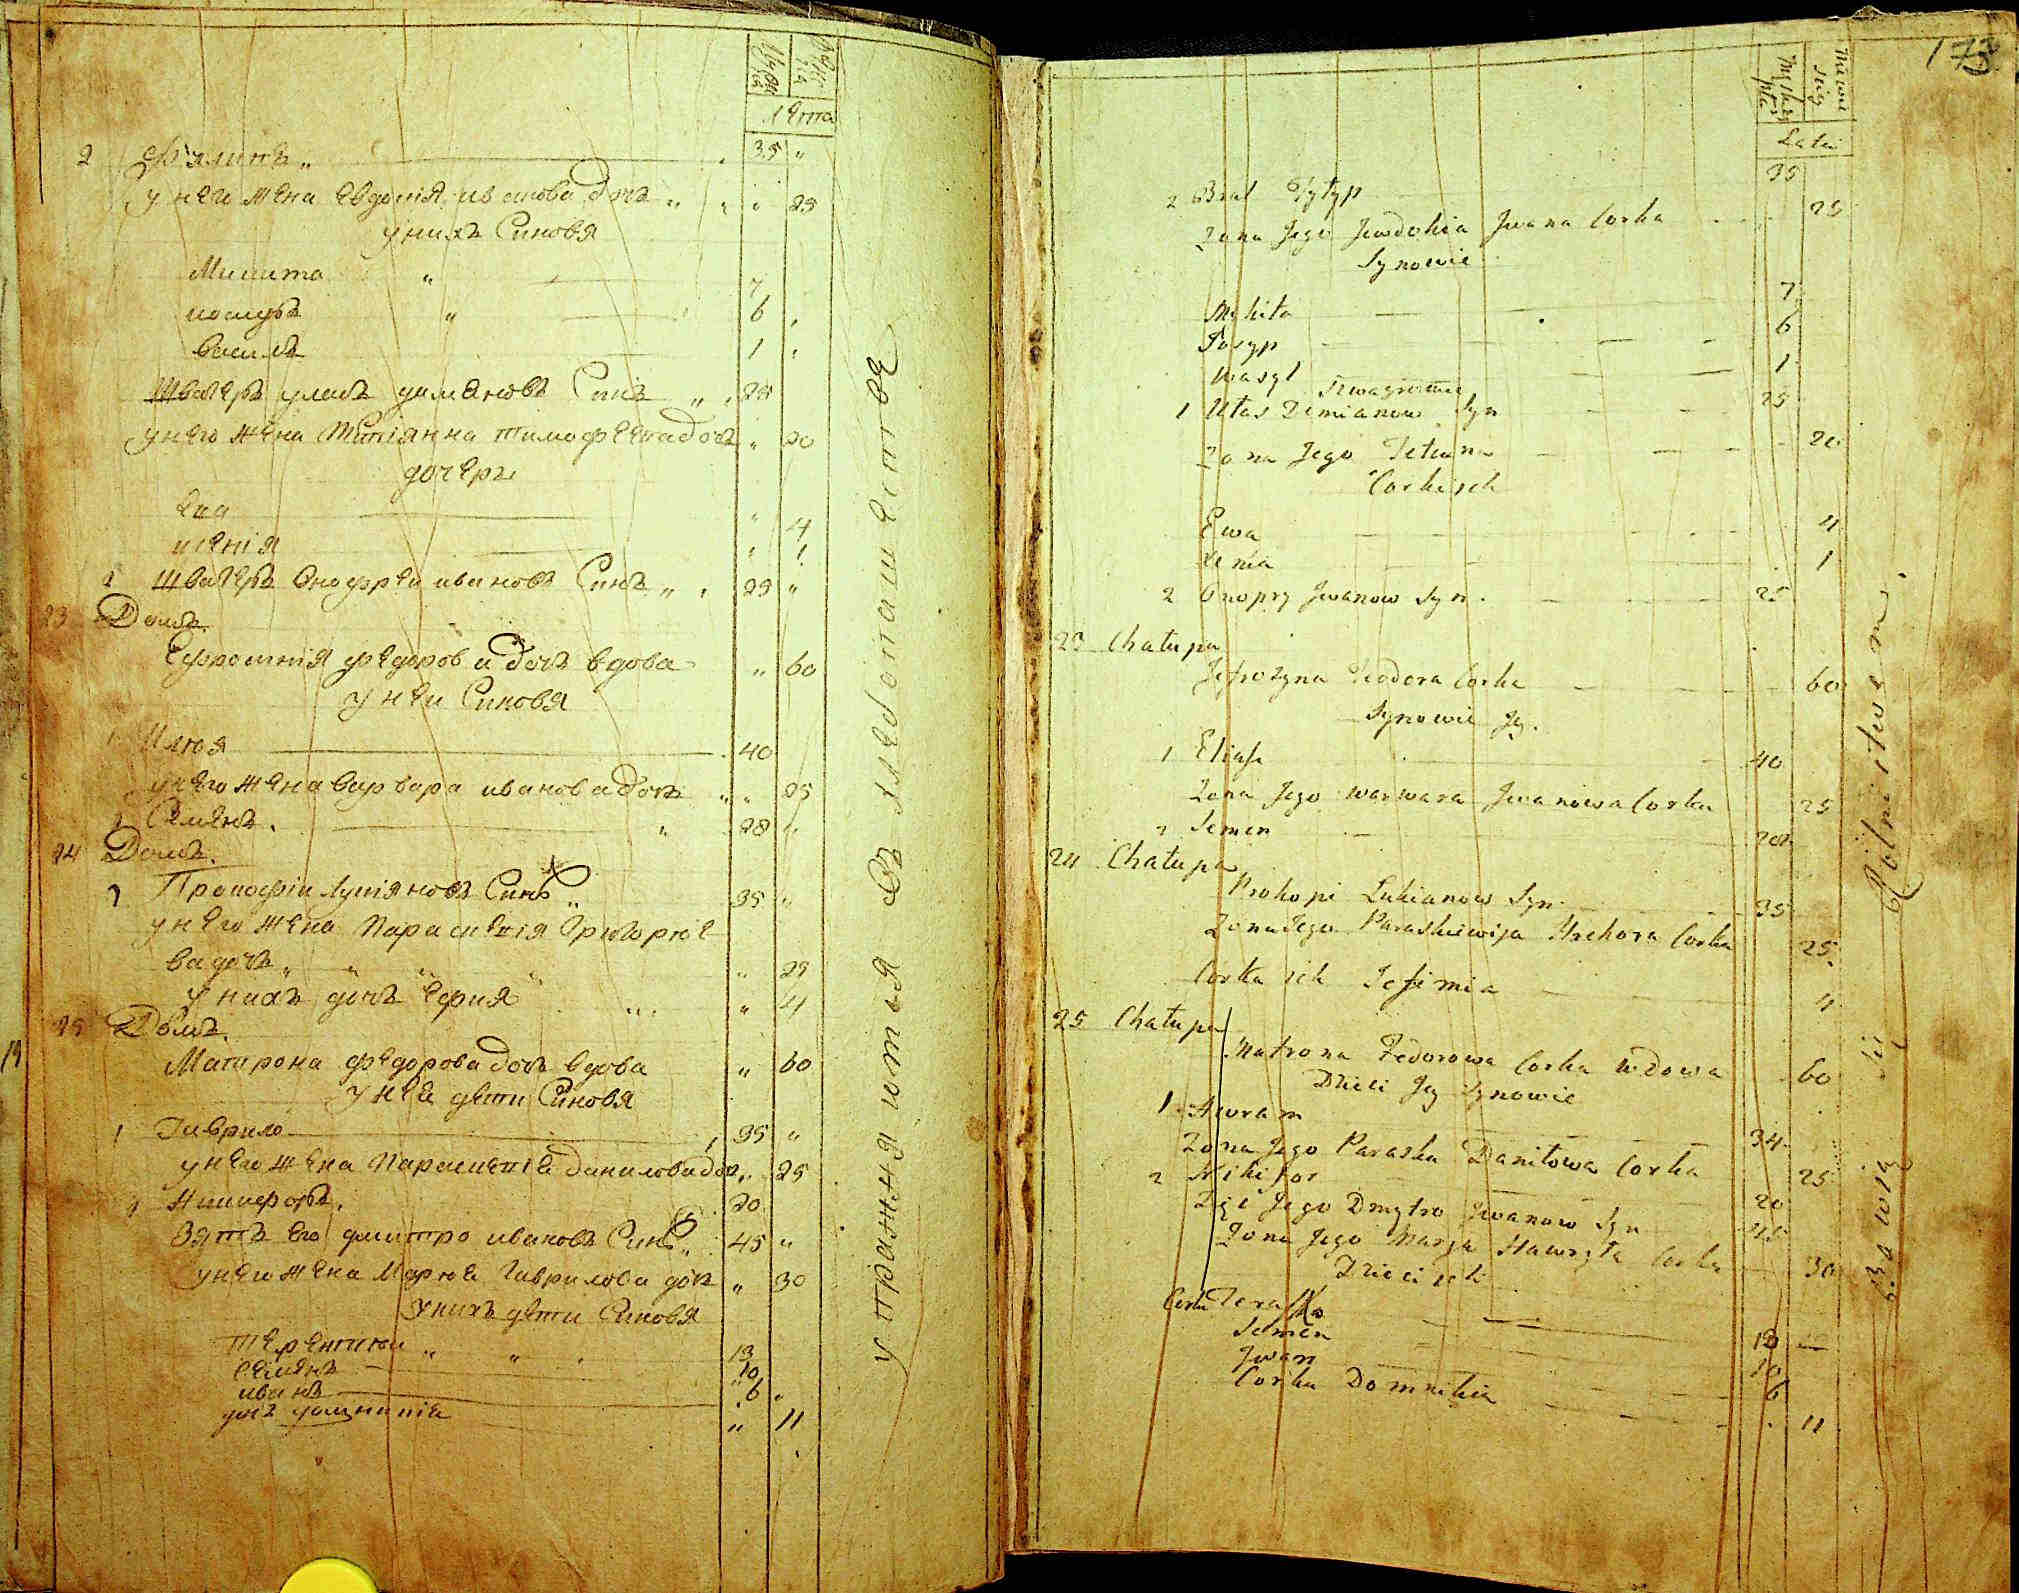 лѣта
2 Филипъ „ 35 „
у него жена Евдокія иванова дочь „ „ 25
у нихъ Синовя
Микита „ 7
иосипъ „ 6
василь 1
Швагеръ уласъ даменовъ Синъ „ 25
у него жена Тетіянна тимофеева дочь „ 20
дочери
Ева „ 4
ксенія „ 1
2 Швагеръ Онофрей ивановъ Синъ „ 25 „
23 Домъ.
Ефросинія федорова дочь вдова „ 60
у неи Синовя
1 Илюя 40
у него жена варвара иванова дочь „ 25
2 Семенъ. „ 20 „
24 Домъ.
1 Прокофіи Лукіяновъ Синъ „ 35 „
у него жена Параскевія Григорие
ва дочь „ „ „ „ 25
у нихъ дочь Ефимія „ 4
25 Домъ.
Матрона федорова дочь вдова „ 60
у нея дети Синовя
1 Гаврило 35 „
у него жена Параскевія данилова дочь „ 25
2 Никифоръ. 20
Зять его дмитро ивановъ Синъ „ 45 „
у него жена Марія Гаврилова дочь „ 30
у нихъ дети Синовя
терентии „ „ 13
семенъ 10
иванъ 6 „
дочь домникія „ 11
упражняются въ хлебопашестве
173
Męska płci
Lata
2 Brat Pylyp 35
Zona Jego Jewdokia Jwana Corka 25
Synowie
Mykita 7
Josyp 6
Wasyl 1
Szwagrowie
1 Ułas Demianow Syn 25
Zona Jego Tetiana 20
Corki ich
Ewa 4
Xenia 1
2 Onopry Jwanow Syn. 25
23 Chałupa
Jefrozyna Teodora Corka 60
Synowie Jey.
1 Eliasz 40
Zona Jego Warwara Jwanowa Corka 25
2 Semen 20
24 Chałupa
Prokopi Lukianow Syn 35
Zona Jego Paraskiewija Hrehora Corka 25
Corka ich Jefimia 4
25 Chałupa
Matrona Fedorowa Corka wdowa 60
Dzieci Jey Synowie
1 Awram 34
Zona Jego Paraska Daniłowa Corka 25
2 Nikifor 20
Zięć Jego Dmytro Jwanow Syn 45
Zona Jego Marya Hawryła Corka 30
Dzieci ich
Corka Teraszka 13
Semen 10
Jwan 6
Corka Domnikia 11
Bawią się Rolnictwem.